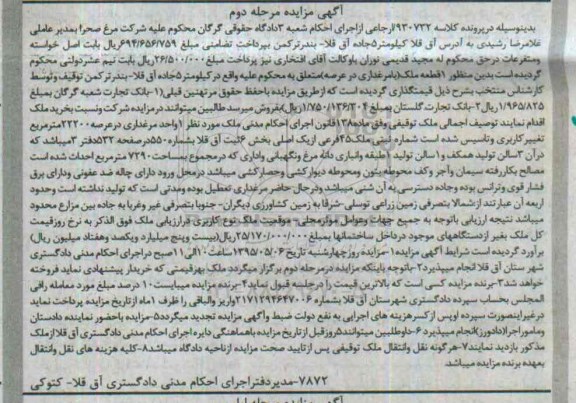 آگهی مزایده مرحله دوم
بدینوسیله درپرونده کلاسه ۹۳۰۷۳۲ارجاعی ازاجرای احکام شعبه ۳دادگاه حقوقی گرگان محکوم علیه شرکت مرغ صحرا بمدیر عاملی
غلامرضا رشیدی به آدرس آق قلا کیلومتر۵جاده آق قلا- بندرترکمن بپرداخت تضامنی مبلغ ۶۹۴/۶۵۶/۷۵۹ریال بابت اصل خواسته
ومتفرعات درحق محکوم له مجید قدیمی نوران باوکالت آقای افتخاری نیز پرداخت مبلغ۲۶/۵۰۰/۰۰۰ریال بابت نیم عشردولتی محکوم
گردیده است بدین منظور ۱قطعه ملک(بامرغداری در عرصه)متعلق به محکوم علیه واقع در کیلومتر۵جاده آق قلا-بندرترکمن توقیف وتوسط
کارشناس منتخب بشرح ذیل قیمتگذاری گردیده است که ازطریق مزایده باحفظ حقوق مرتهنین قبلی(۱-بانک تجارت شعبه گرگان بمبلغ
۱/۹۶۵/۸۲۵ریال۲-بانک تجارت گلستان بمبلغ۱/۷۵۰/۱۳۶/۳۰۴ریال)بفروش میرسد طالبین میتوانند درمزایده شرکت ونسبت بخرید ملک
اقدام نمایند توصیف اجمالی ملک توقیفی وفق ماده۱۳۸قانون اجرای احکام مدنی ملک مورد نظر ۱واحد مرغداری درعرصه۲۲۲۰۰مترمربع
تغییر کاربری وتاسیس شده است شماره ثبتی ملک۴۵فرعی ازیک اصلی بخش ۶ثبت آق قلا بشماره۵۵۰درصفحه ۵۳۲دفتر ۳میباشد که
درآن ۳سالن تولید همکف و۱سالن تولید ۲طبقه وانباری دانه مرغ ونگهبانی واداری که درمجموع بمساحت۷۲۹۰ مترمربع احداث شده است
مصالح بکاررفته سیمان وآجر وکف محوطه بتون ومحوطه دیوارکشی وحصارکشی میباشد درمحل ورود دارای چاله ضد عفونی ودارای برق
فشار قوی وترانس بوده وجاده دسترسی به آن شنی میباشد ودرحال حاضر مرغداری تعطیل بوده ومدتی است که تولید نداشته است وحدود
اربعه آن عبارتند ازشمالا بتصرفی زمین زراعی توسلی -شرقا به زمین کشاورزی دیگران- جنوبا بتصرفی غیر وغربا به جاده بین مزارع محدود
میباشد نتیجه ارزیابی باتوجه به جمیع جهات وعوامل موثرمحلی- موقعیت ملک نوع کاربری وارزیابی ملک فوق الذکر به نرخ روزقیمت
کل ملک بغیر ازدستگاههای موجود درداخل ساختمانها بمبلغ ۲۵/۱۷۰/۰۰۰/۰۰۰ریال(بیست وپنج میلیارد ویکصد وهفتاد میلیون ریال)
برآورد گردیده است شرایط آگهی مزایده۱-مزایده روزچهارشنبه تاریخ ۱۳۹۵/۰۵/۰۶ساعت۱۰الی۱۱صبح دراجرای احکام مدنی دادگستری
شهر ستان آق قلا انجام میپذیرد۲-باتوجه باینکه مزایده درمرحله دوم برگزار میگردد ملک بهرقیمتی که خریدار پیشنهادی نماید فروخته
خواهد شد۳-برنده مزایده کسی است که بالاترین قیمت را درجلسه قبول نماید۴-برنده مزایده میبایست۱۰ درصد مبلغ مورد معامله رافی
المجلس بحساب سپرده دادگستری شهرستان آق قلا بشماره ۲۱۷۱۲۹۴۶۴۷۰۰۶واریز والباقی را ظرف ۱ماه ازتاریخ مزایده پرداخت نماید
درغیراینصورت سپرده اوپس از کسرهزینه های اجرایی به نفع دولت ضبط وآگهی مزایده تجدید میگردد۵-مزایده باحضور نماینده دادستان
ومامورا‌جرا(دادورز)انجام میپذیرد ۶-داوطلبین میتوانند۵روز قبل ازتاریخ مزایده باهماهنگی دایره اجرای احکام مدنی دادگستری آق قلا ازملک
مذکور بازدید نمایند۷-هر گونه نقل وانتقال ملک توقیفی پس ازتایید صحت مزایده ازناحیه دادگاه میباشد۸-کلیه هزینه های نقل وانتقال
بعهده برنده مزایده میباشد.
۷۸۷۲-مدیردفتراجرای احکام مدنی دادگستری آق قلا- کتوکی